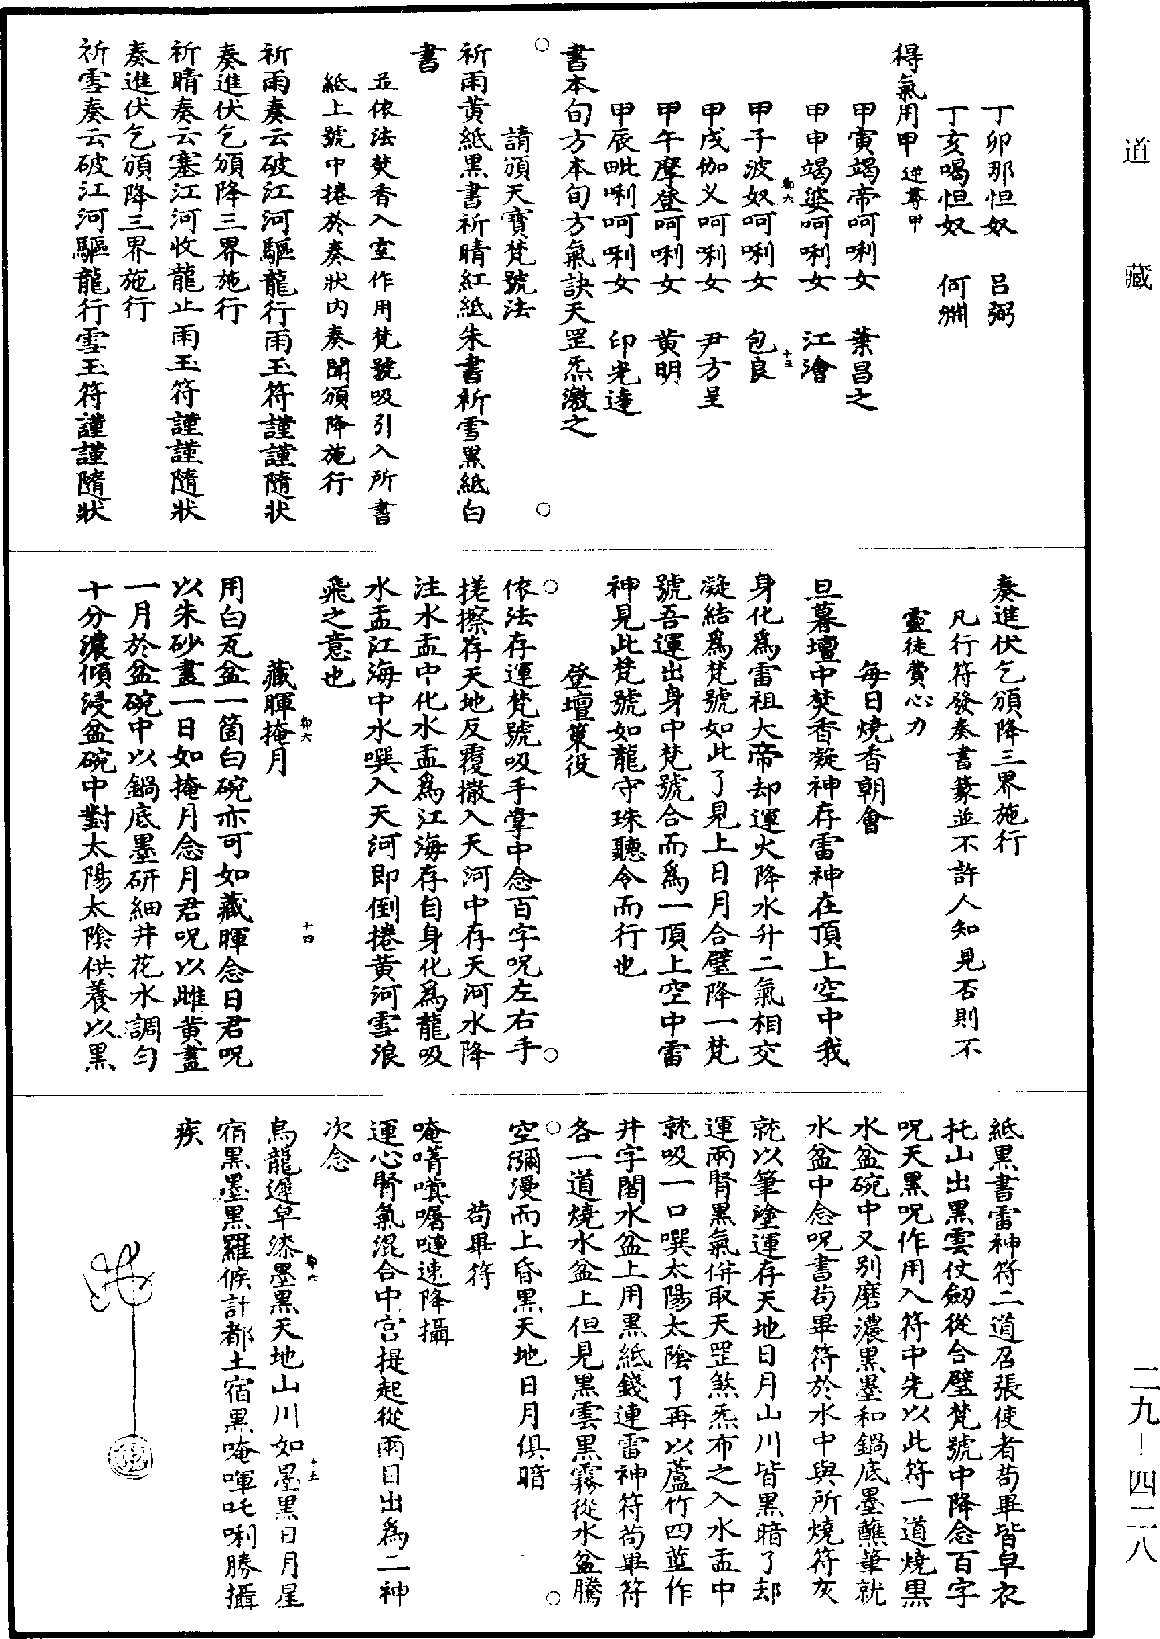 道藏
丁卯那怛奴　呂弼
丁亥喝怛奴　何淵
得氣用甲 逆尋甲
甲寅竭帝呵唎女　葉昌之
甲申竭婆呵唎女　江濬
甲子波奴呵唎女　包良
甲戌伽义呵唎女　尹方呈
甲午摩登呵唎女　黄明
甲辰毗唎呵唎女　印光達
書本旬方本旬方氣訣天罡炁激之
請頒天寶梵號法
祈雨黄紙黑書祈晴紅紙朱書祈雪黑紙白
書
並依法焚香入室作用梵號吸引入所書
紙上號中捲於奏狀内奏聞頒降施行
祈雨奏云破江河驅龍行雨玉符謹謹隨狀
奏進伏乞頒降三界施行
祈晴奏云塞江河收龍止雨玉符謹謹隨狀
奏進伏乞頒降三界施行
祈雪奏云破江河驅龍行雪玉符謹謹隨狀
奏進伏乞頒降三界施行
凡行符發奏書篆並不許人知見否則不
靈徒費心力
每日燒香朝會
旦暮壇中焚香凝神存雷神在頂上空中我
身化爲雷祖大帝却運火降水升二氣相交
凝結爲梵號如此了見上日月合璧降一梵
號吾運出身中梵號合而爲一頂上空中雷
神見此梵號如龍守珠聽令而行也
登壇策役
依法存運梵號吸手掌中念百字呪左右手
搓擦存天地反覆撒入天河中存天河水降
注水盂中化水盂爲江海存自身化爲龍吸
水盂江海中水噀入天河即倒捲黄河雪浪
飛之意也
藏暉掩月
十四
用白瓦盆一箇白碗亦可如藏暉念日君呪
以朱砂畫一日如掩月念月君呪以雌黄畫
一月於盆碗中以鍋底墨研細井花水調勻
十分濃傾浸盆碗中對太陽太陰供養以黑
紙黑書雷神符二道召張使者苟畢皆皁衣
托山出黑雲仗劒從合璧梵號中降念百字
呪天黑呪作用入符中先以此符一道燒黑
水盆碗中又别磨濃黑墨和鍋底墨蘸筆就
水盆中念呪書苟畢符於水中與所燒符灰
就以筆塗運存天地日月山川皆黑暗了却
運兩腎黑氣併取天罡煞炁布之入水盂中
就吸一口噀太陽太陰了再以蘆竹四莖作
井字閣水盆上用黑紙錢連雷神符苟畢符
各一道燒水盆上但見黑雲黑霧從水盆騰
空瀰漫而上昏黑天地日月俱暗
苟畢符
唵𠹌嚝囑噠速降攝
運心腎氣混合中宫提起從兩目出爲二神
次念
烏龍遲皁漆墨黑天地山川如墨黑日月星
宿黑墨黑羅㬋計都土宿黑唵㖇吒唎勝攝
疾
二九-四二八